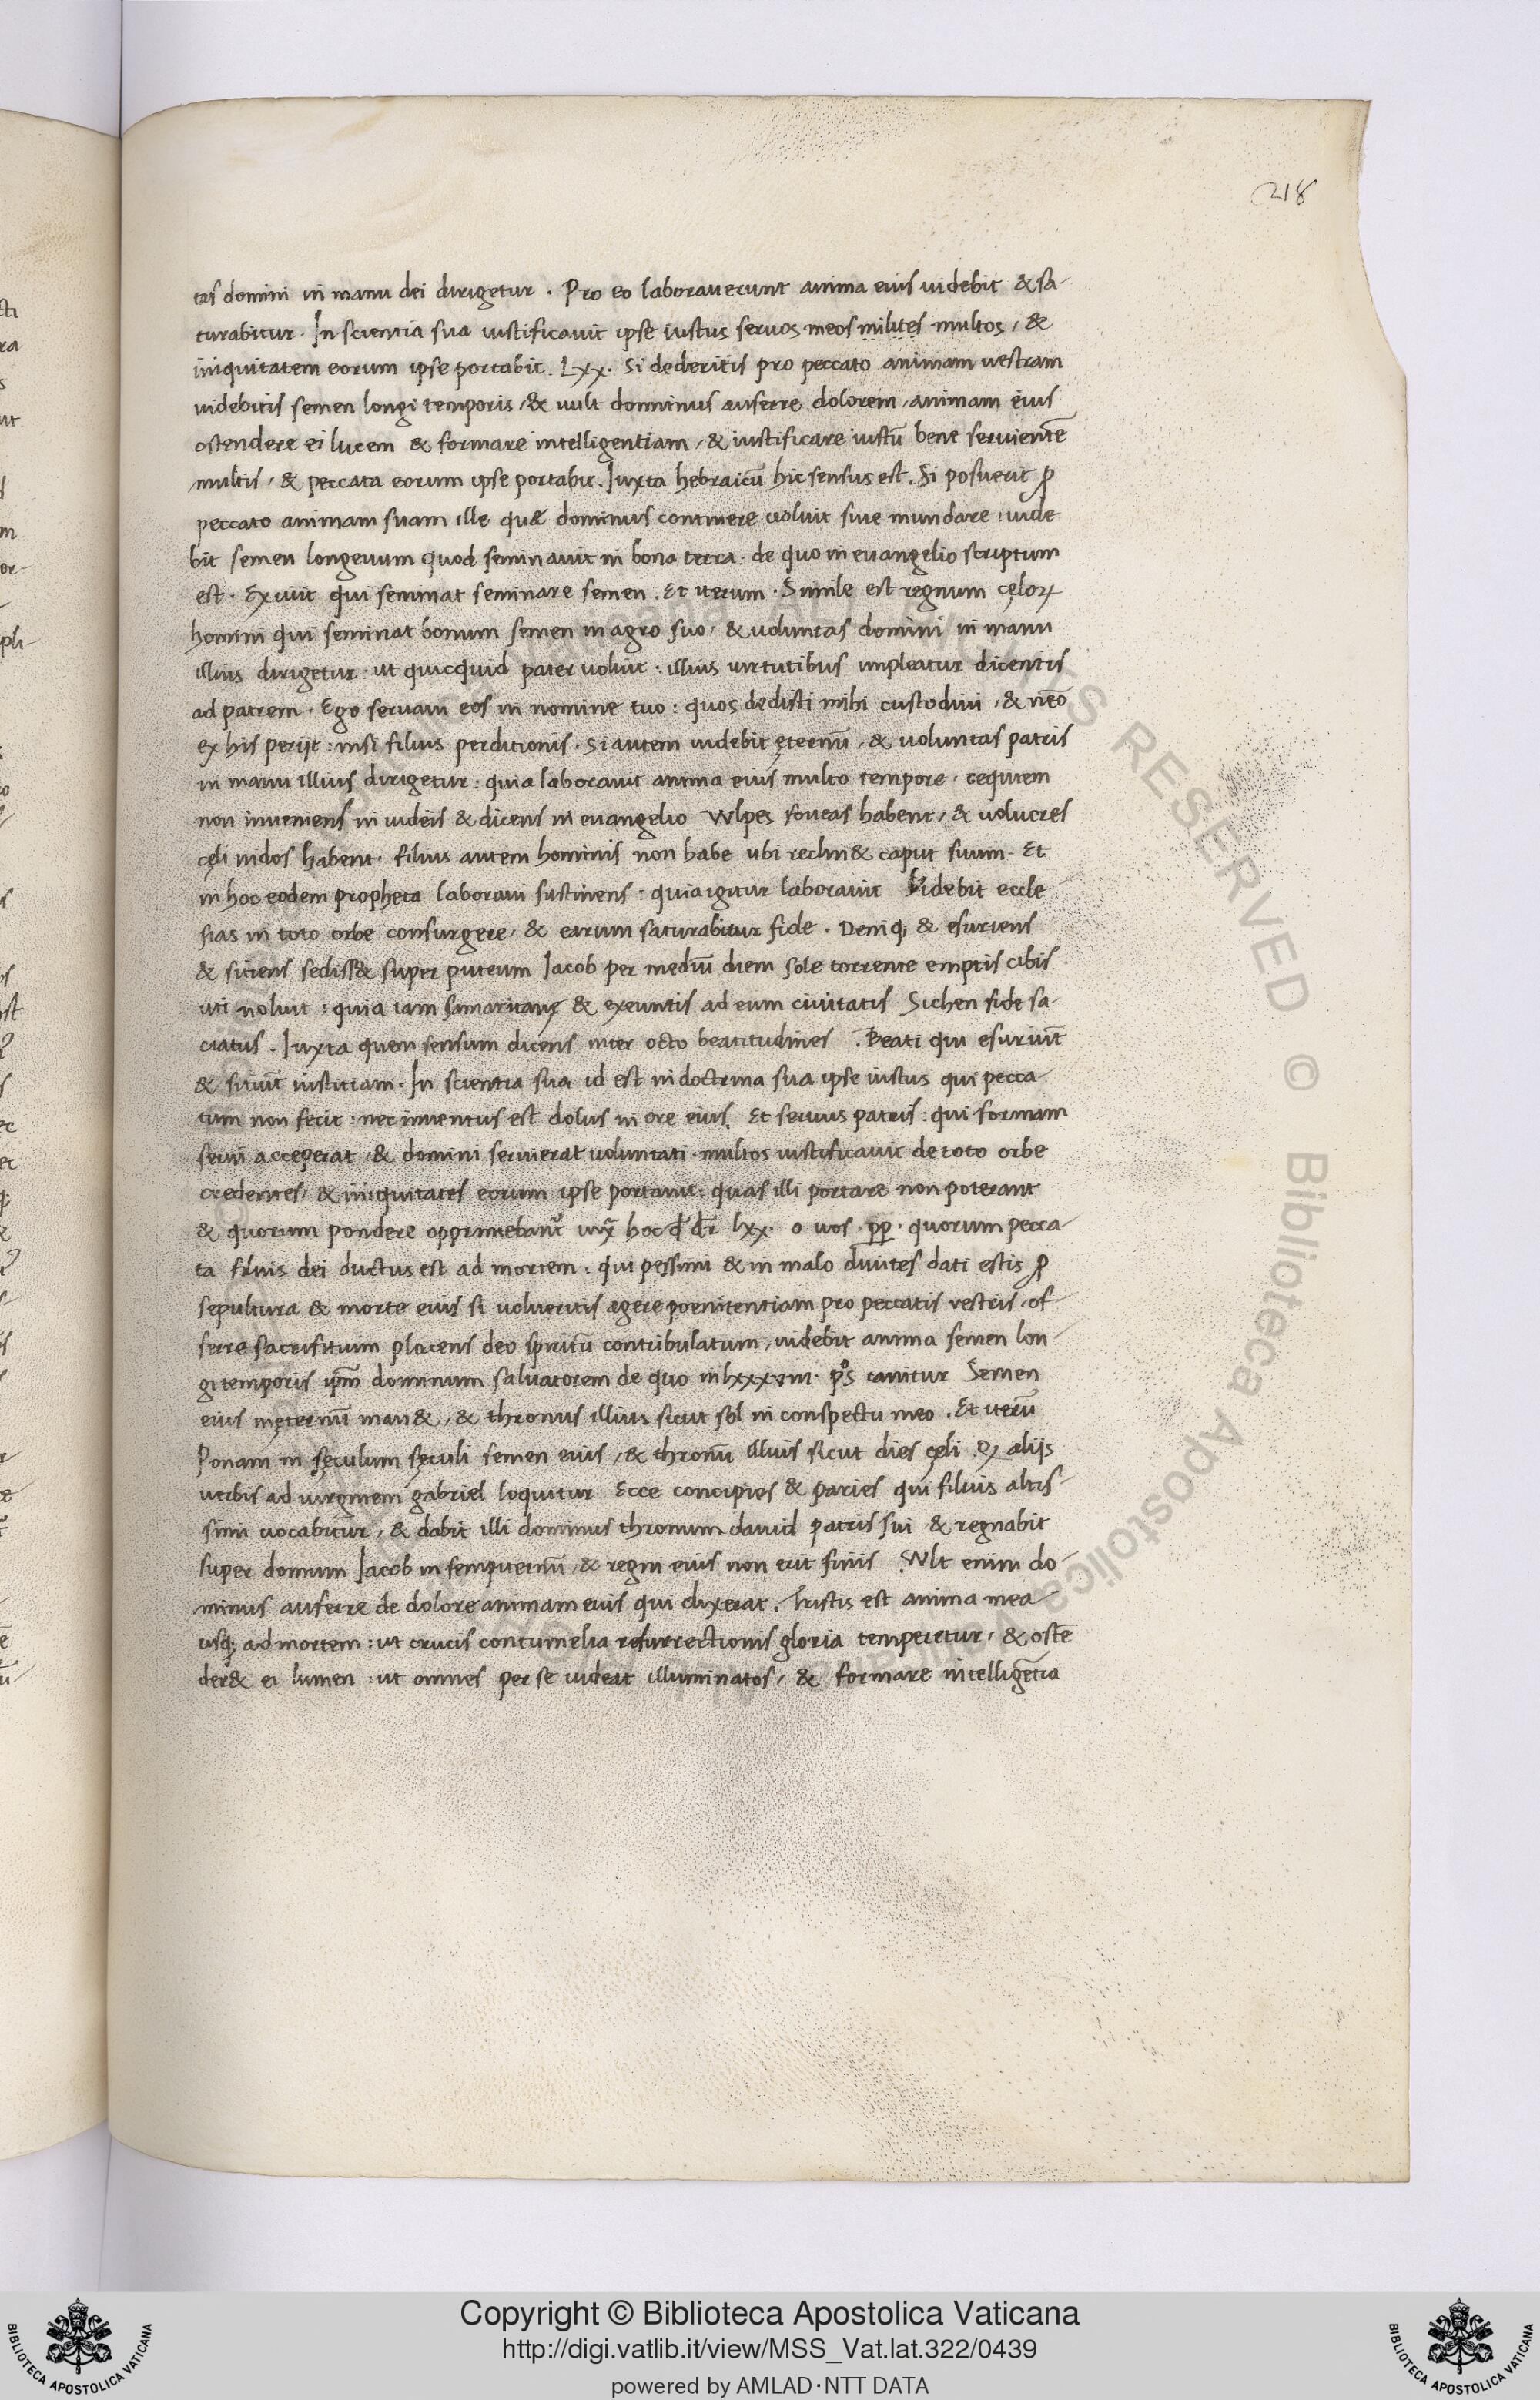 218
tas domini in manu dei dirigetur . Pro eo laborauerunt anima eius uidebit & sa-
turabitur . In scientia sua iustificauit ipse iustus seruos meos milites multos , &
iniquitatem eorum ipse portabit . Lxx . Si dederitis pro peccato animam uestram
uidebitis semen longi temporis , & uult dominus auferre dolorem , animam eius
ostendere ei lucem & formare intelligentiam , & iustificare iustū bene seruientē
multis , & peccata eorum ipse portabit . Iuxta hebraicū hic sensus est . Si posuerit ꝓ
peccato animam suam ille quē dominus conterere uoluit siue mundare : uide
bit semen longeuum quod seminauit in bona terra : de quo in euangelio scriptum
est . Exiuit qui seminat seminare semen . Et iterum . Simile est regnum cęloꝝ
homini qui seminat bonum semen in agro suo , & uoluntas domini in manu
illius dirigetur : ut quicquid pater uoluit : illius uirtutibus impleatur dicentis
ad patrem . Ego seruaui eos in nomine tuo : quos dedisti mihi custodiui , & nēo
ex his perijt : nisi filius perditionis . Si autem uidebit ęternū , & uoluntas patris
in manu illius dirigetur : quia laborauit anima eius multo tempore , requiem
non inueniens in iudeis & dicens in euangelio Wlpes foueas habent , & uolucres
cęli nidos habent . filius autem hominis non habe ubi reclin& caput suum . Et
in hoc eodem propheta laboraui sustinens : quia igitur laborauit Videbit eccle
sias in toto orbe consurgere , & earum saturabitur fide . Deniq; & esuriens
& sitiens sediss& super puteum Iacob per mediū diem sole torrente emptis cibis
uti noluit : quia iam samaritanę & exeuntis ad eum ciuitatis Sichen fide sa-
ciatus . Iuxta quem sensum dicens inter octo beatitudines . Beati qui esuriūt
& sitiūt iustitiam . In scientia sua id est in doctrina sua ipse iustus qui pecca-
tum non fecit : nec inuentus est dolus in ore eius . Et seruus patris : qui formam
serui acceperat , & domini seruierat uoluntati . multos iustificauit de toto orbe
credentes , & iniquitates eorum ipse portauit : quas illi portare non poterant
& quorum pondere opprimebant᷑ hoc lxx . o uos . quorum pecca-
ta filius dei ductus est ad mortem : qui pessimi & in malo diuites dati estis ꝓ
sepultura & morte eius si uolueritis agere poenitentiam pro peccatis vestris of-
ferre sacrifitium placens deo spiritū contribulatum , uidebit anima semen lon-
gi temporis ipm̄ dominum saluatorem de quo in lxxxviii . canitur Semen
eius inęternū man& , & thronus illius sicut sol in conspectu meo . Et iterū
Ponam in sęculum sęculi semen eius , & thronū illius sicut dies cęli . aliis
uerbis ad uirginem gabriel loquitur Ecce concipies & paries qui filius altis-
simi uocabitur , & dabit illi dominus thronum dauid patris sui & regnabit
super domum Iacob in sempiternū , & regni eius non erit finis . Wlt enim do-
minus auferre de dolore animam eius qui dixerat . Tristis est anima mea
usq; ad mortem : ut crucis contumelia resurrectionis gloria temperetur , & ostē
der& ei lumen : ut omnes per se uideat illuminatos , & formare intelligētia
Copyright © Biblioteca Apostolica Vaticana
http://digi.vatlib.it/view/MSS_Vat.lat.322/0439
powered by AMLAD·NTT DATA
BIBLIOTECA APOSTOLICA VATICANA
BIBLIOTECA APOSTOLICA VATICANA